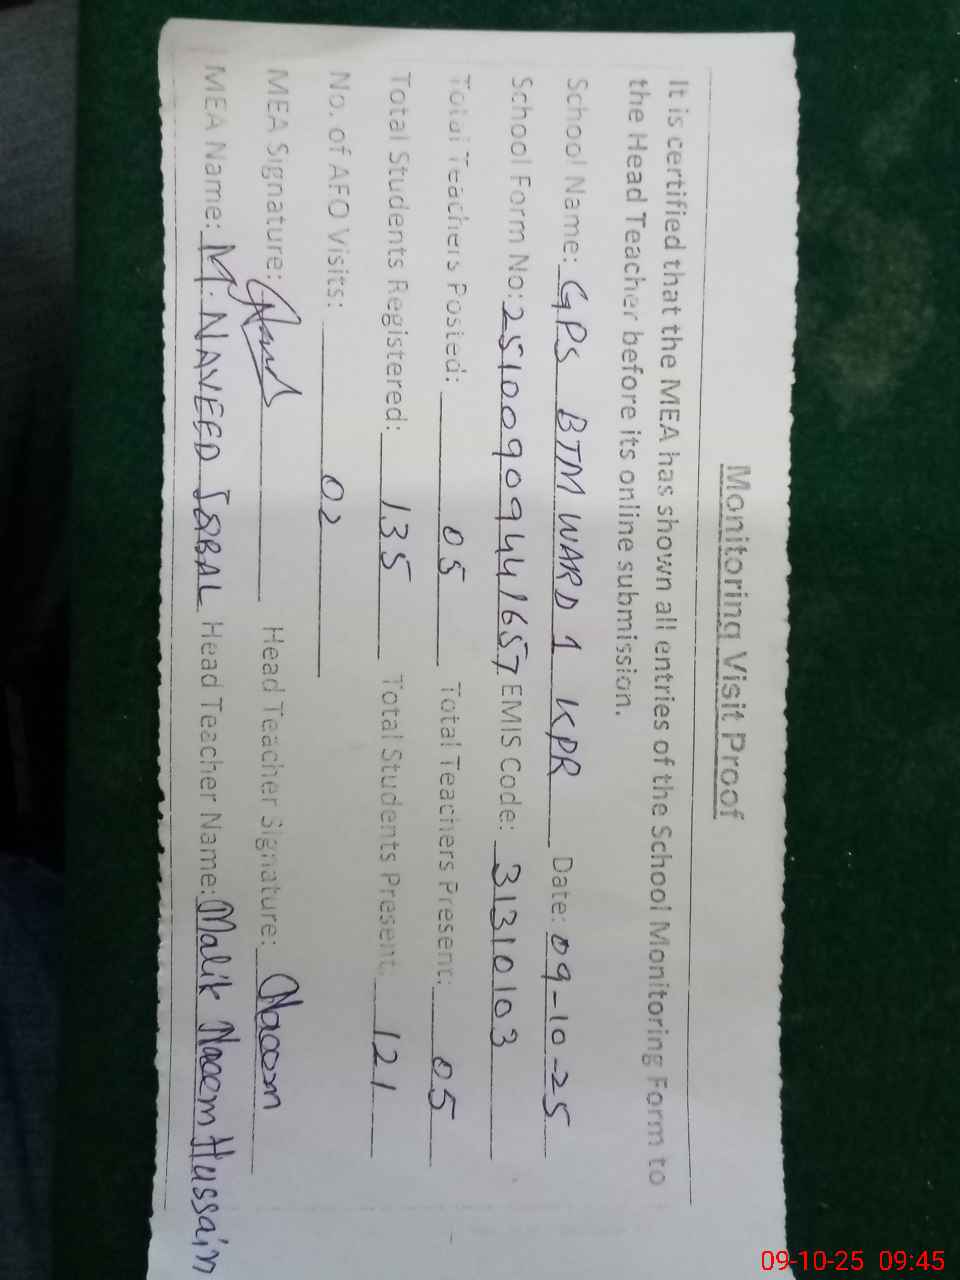 Monitoring Visit Proof
It is certified that the MEA has shown all entries of the School Monitoring Form to
the Head Teacher before its online submission.
School Name: GPS BTM WARD 1 KPR Date: 09-10-25
School Form No: 25100909441657 EMIS Code: 31310103
Total Teachers Posted: 05 Total Teachers Present: 05
Total Students Registered: 135 Total Students Present: 121
No. of AEO Visits: 02
MEA Signature: Head Teacher Signature: Naeem
MEA Name: M. NAVEED IQBAL Head Teacher Name: Malik Naeem Hussain
09-10-25 09:45